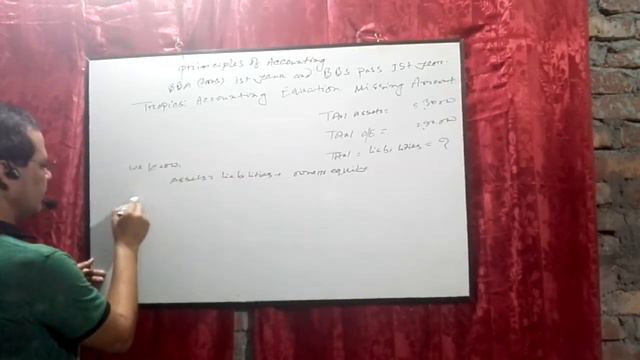 Principles of Accounting
BBA (Hons) 1st year and BBS Pass 1st year.
Tropics: Accounting Equation Missing Amount
Total Assets=
Total o/e =
Total = Liabilities = ?
we know,
Assets = Liabilities + owners equity